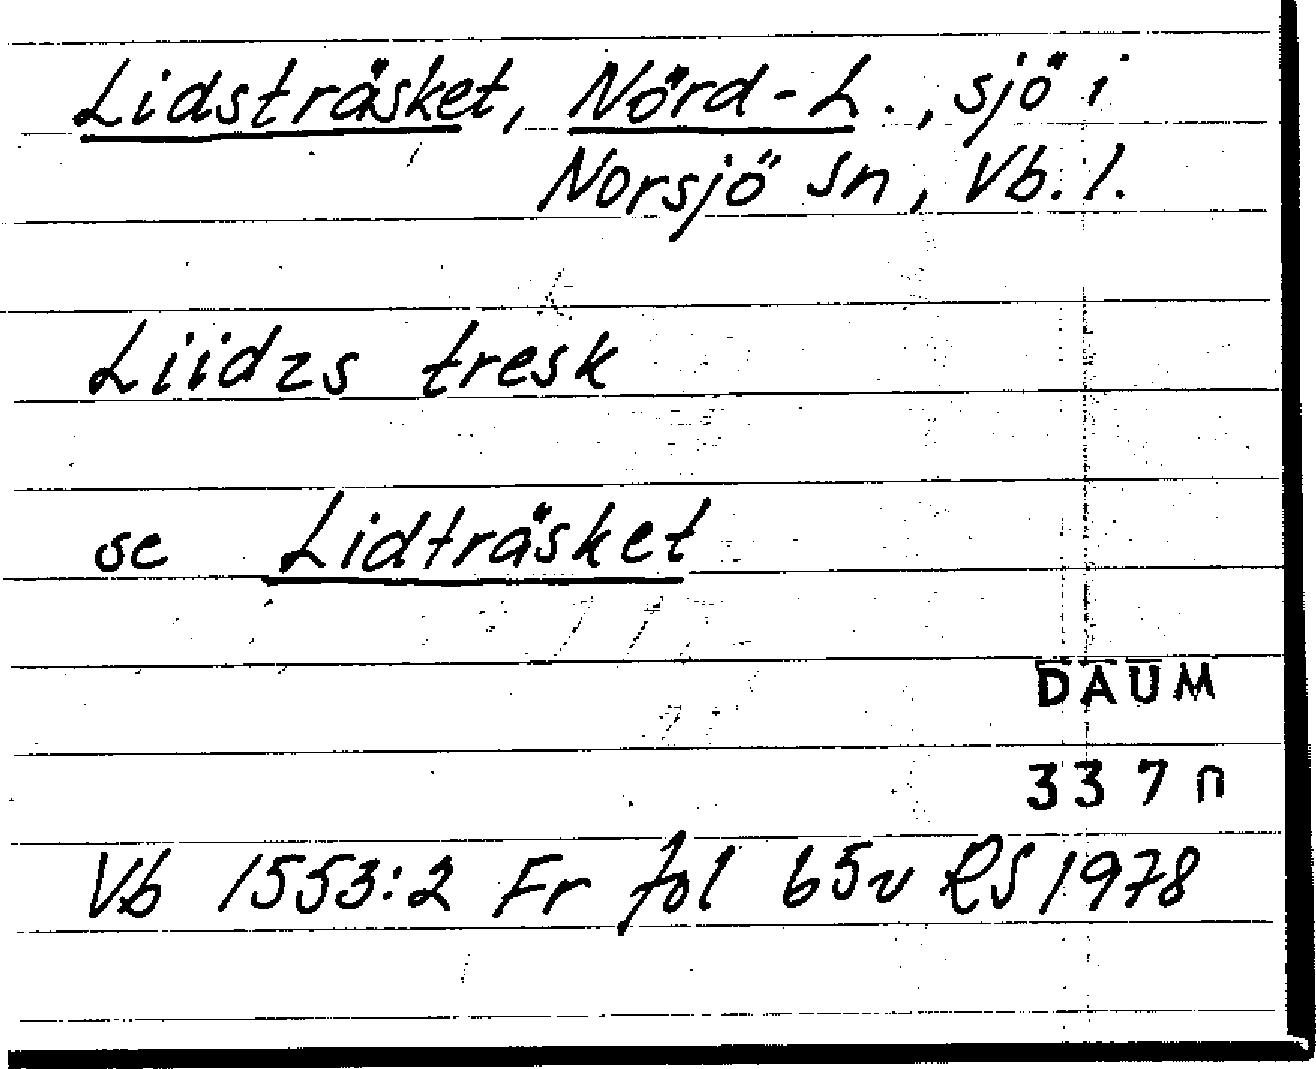 Lidsträsket, Nörd-L., sjö i
Norsjö sn, Vb. l.
Liidzs tresk
se Lidträsket
DAUM
337 n
Vb 1553:2 Fr fol 65v RS 1978